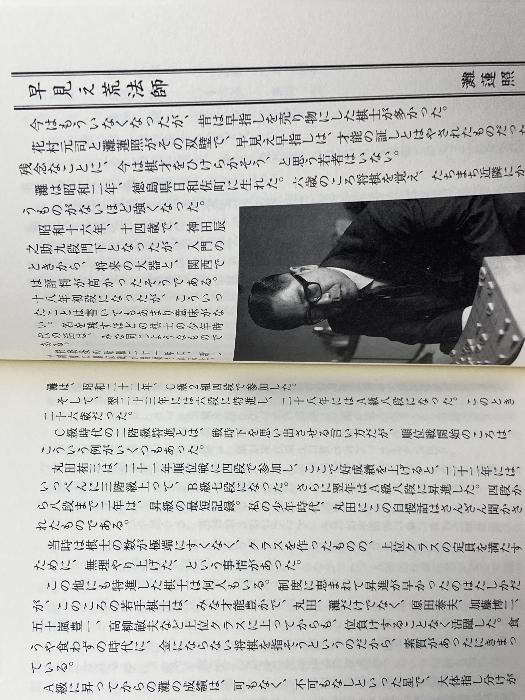 早見え荒法師
灘 蓮照
今はもういなくなったが、昔は早指しを売り物にした棋士が多かった。
花村元司と灘蓮照がその双璧で、早見え早指しは、才能の証しとはやされたものだった
残念なことに、今は棋才をひけらかそう、と思う若者はいない。
灘は昭和二年、徳島県日和佐町に生れた。六歳のころ将棋を覚え、たちまち近隣にか
うものがないほど強くなった。
昭和十六年、十四歳で、神田辰
之助九段門下となったが、入門の
ときから、将来の大器と、関西で
は評判が高かったそうである。
十八年初段になったが、こういっ
たことは書いてもあまり意味がな
い。名を残すほどの棋士の少年時
灘は、昭和二十二年、C級2組四段で参加した。
そして、翌二十三年には六段に特進し、二十八年にはA級八段になった。このとき
二十六歳だった。
C級時代の二階級特進とは、戦時下を思い出させる言い方だが、順位戦開始のころは、
こういう例がいくつかあった。
丸田祐三は、二十一年順位戦に四段で参加し、ここで好成績を上げると、二十二年には、
いっぺんに三階級上って、B級七段になった。さらに翌年はA級八段に昇進した。四段か
ら八段まで二年は、昇級の最短記録。私の少年時代、丸田にこの自慢話はさんざん聞かさ
れたものである。
当時は棋士の数が極端にすくなく、クラスを作ったものの、上位クラスの定員を満たす
ために、無理やり上げた、という事情があった。
この他にも特進した棋士は何人もいる。制度に恵まれて昇進が早かったのはたしかだ
が、このころの若手棋士は、みな才能豊かで、丸田、灘だけでなく、原田泰夫、加藤博二、
五十嵐豊一、高柳敏夫など上位クラスに上ってからも、位負けすることなく活躍した。食
うや食わずの時代に、金にならない将棋を指そうというのだから、素質があったにきまっ
ている。
A級に昇ってからの灘の成績は、可もなく、不可もなしといった星で、大体指し分けが